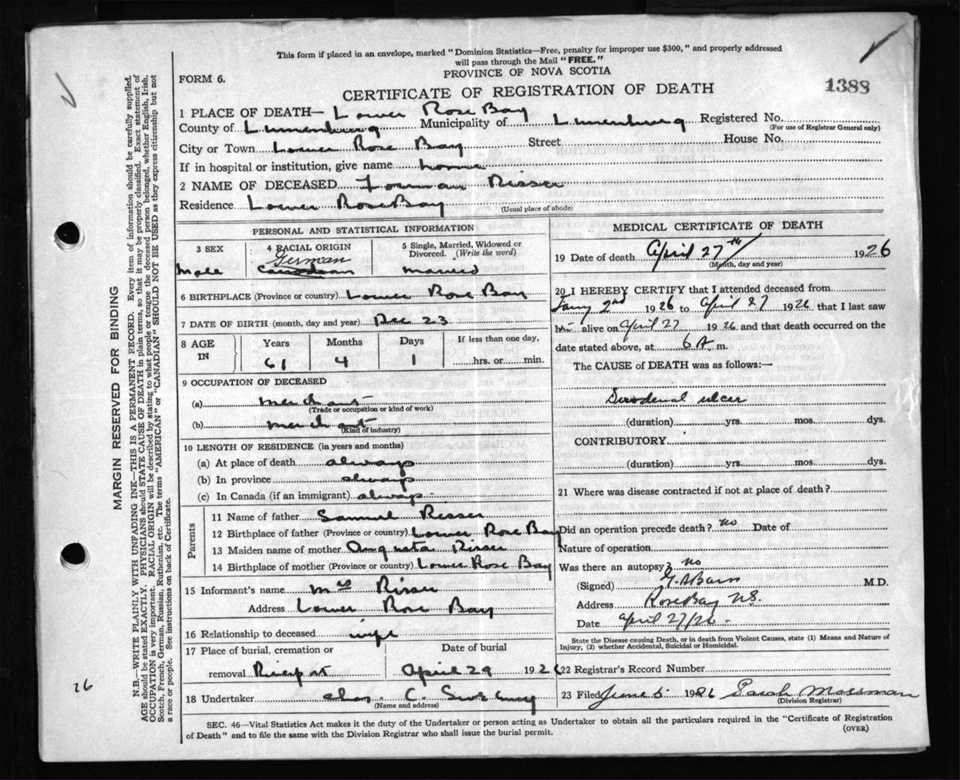 This form if placed in an envelope, marked "Dominion Statistics—Free, penalty for improper use $300," and properly addressed
will pass through the Mail "FREE."
FORM 6.
PROVINCE OF NOVA SCOTIA
CERTIFICATE OF REGISTRATION OF DEATH
1388
1 PLACE OF DEATH— Lower Rose Bay
County of Lunenburg Municipality of Lunenburg Registered No.
(For use of Registrar General only)
City or Town Lower Rose Bay Street House No.
If in hospital or institution, give name home
2 NAME OF DECEASED Risser
Residence Lower Rose Bay
(Usual place of abode)
PERSONAL AND STATISTICAL INFORMATION
3 SEX 4 RACIAL ORIGIN 5 Single, Married, Widowed or
Divorced. (Write the word)
German
Male Canadian married
6 BIRTHPLACE (Province or country) Lower Rose Bay
7 DATE OF BIRTH (month, day and year) Dec 23
8 AGE IN Years Months Days If less than one day,
61 4 1 hrs. or min.
9 OCCUPATION OF DECEASED
(a) merchant
(Trade or occupation or kind of work)
(b) merchant
(Kind of industry)
10 LENGTH OF RESIDENCE (in years and months)
(a) At place of death always
(b) In province always
(c) In Canada (if an immigrant) always
Parents
11 Name of father Samuel Risser
12 Birthplace of father (Province or country) Lower Rose Bay
13 Maiden name of mother Risser
14 Birthplace of mother (Province or country) Lower Rose Bay
15 Informant's name Mrs Risser
Address Lower Rose Bay
16 Relationship to deceased wife
17 Place of burial, cremation or Date of burial
removal Riverport April 29 1926
18 Undertaker Chas. C.
(Name and address)
MEDICAL CERTIFICATE OF DEATH
19 Date of death April 27th 1926
(Month, day and year)
20 I HEREBY CERTIFY that I attended deceased from
Jany 2nd 1926 to April 27 1926 that I last saw
him alive on April 27 1926 and that death occurred on
date stated above, at 6 A m.
The CAUSE of DEATH was as follows:—
Duodenal ulcer
(duration) yrs. mos. dys.
CONTRIBUTORY
(duration) yrs. mos. dys.
21 Where was disease contracted if not at place of death?
Did an operation precede death? no Date of
Nature of operation
Was there an autopsy? no
(Signed) M.D.
Address Rose Bay N.S.
Date April 27/26
State the Disease causing Death, or in death from Violent Causes, state (1) Means and Nature of
Injury, (2) whether Accidental, Suicidal or Homicidal.
22 Registrar's Record Number
23 Filed June 5 1926 Sarah Mossman
(Division Registrar)
SEC. 46—Vital Statistics Act makes it the duty of the Undertaker or person acting as Undertaker to obtain all the particulars required in the "Certificate of Registration
of Death" and to file the same with the Division Registrar who shall issue the burial permit.
(OVER)
MARGIN RESERVED FOR BINDING
N.B.—WRITE PLAINLY WITH UNFADING INK—THIS IS A PERMANENT RECORD. Every item of information should be carefully supplied.
AGE should be stated EXACTLY. PHYSICIANS should STATE CAUSE OF DEATH in plain terms, so that it may be properly classified. Exact statement of
OCCUPATION is very important. RACIAL ORIGIN will be described by stating to what people or tongue the deceased person belonged, whether English, Irish,
Scotch, French, German, Russian, Ruthenian, etc. The terms "AMERICAN" or "CANADIAN" SHOULD NOT BE USED as they express citizenship but not
a race or people. See instructions on back of Certificate.
26